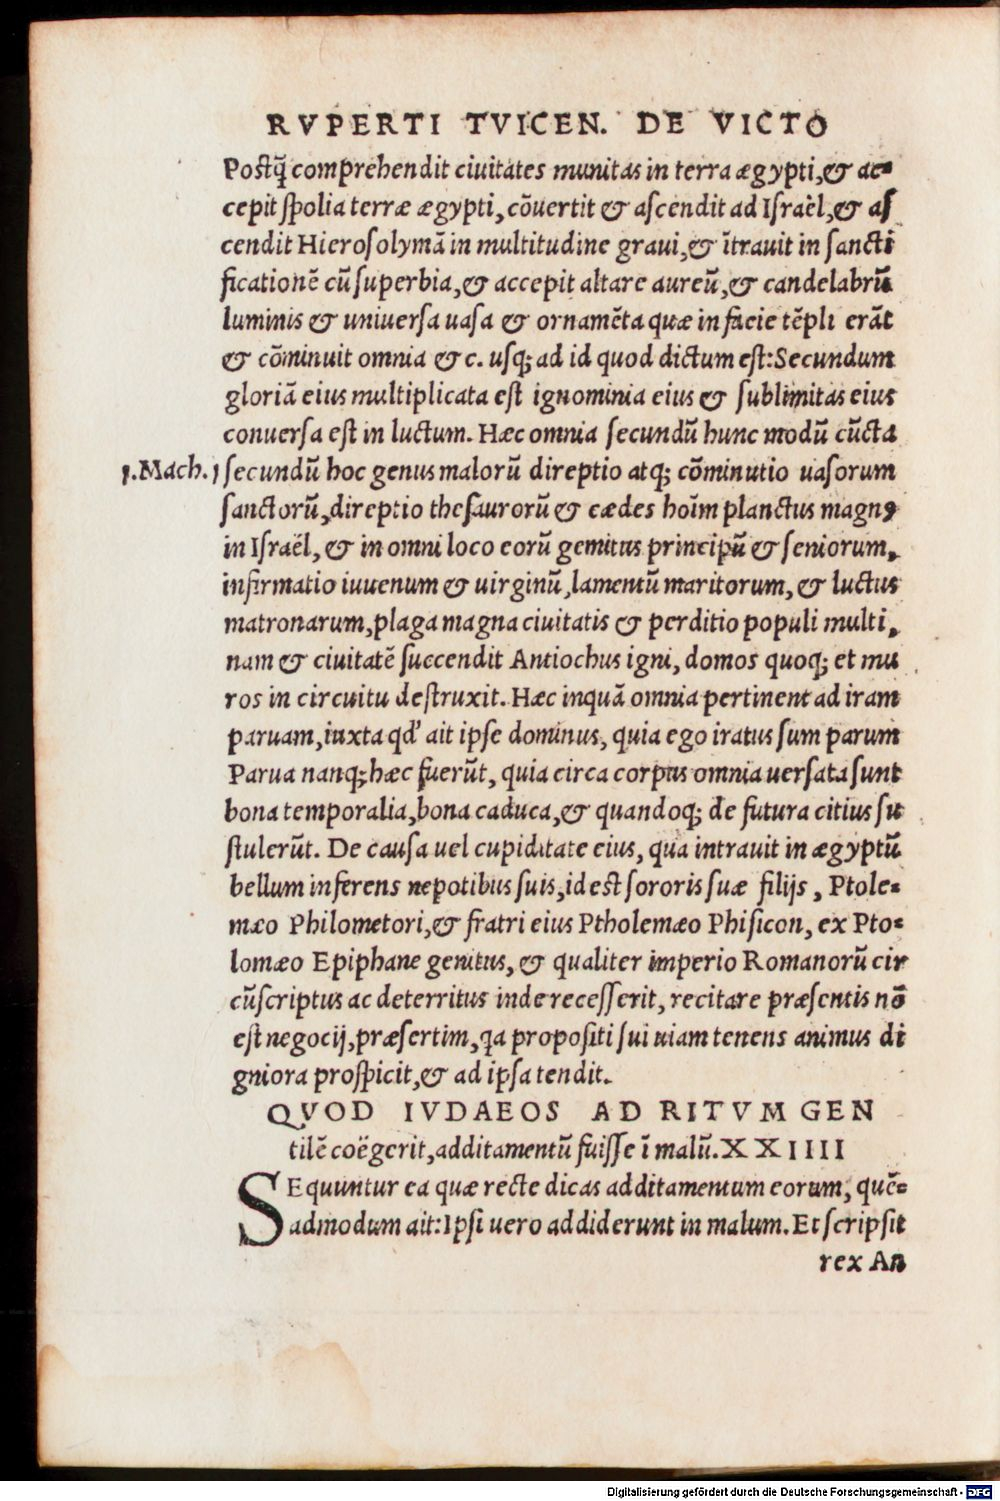 RVPERTI TVICEN. DE VICTO
Postq̃ comprehendit ciuitates munitas in terra ægypti, & ac-
cepit spolia terræ ægypti, cõuertit & ascendit ad Israèl, & as
cendit Hierosolymã in multitudine graui, & ĩtrauit in sancti
ficationẽ cũ superbia, & accepit altare aureũ, & candelabrũ
luminis & uniuersa uasa & ornamẽta quæ in facie tẽpli erãt
& cõminuit omnia & c. usq; ad id quod dictum est: Secundum
gloriã eius multiplicata est ignominia eius & sublimitas eius
conuersa est in luctum. Hæc omnia secundũ hunc modũ cũcta
1. Mach. 1 secundũ hoc genus malorũ direptio atq; cõminutio uasorum
sanctorũ, direptio thesaurorũ & cædes hoĩm planctus magnꝰ
in Israël, & in omni loco eorũ gemitus principũ & seniorum,
infirmatio iuuenum & uirginũ, lamentũ maritorum, & luctus
matronarum, plaga magna ciuitatis & perditio populi multi,
nam & ciuitatẽ succendit Antiochus igni, domos quoq; et mu
ros in circuitu destruxit. Hæc inquã omnia pertinent ad iram
paruam, iuxta qd' ait ipse dominus, quia ego iratus sum parum
Parua nanq; hæc fuerũt, quia circa corpus omnia uersata sunt
bona temporalia, bona caduca, & quandoq; de futura citius su
stulerũt. De causa uel cupiditate eius, qua intrauit in ægyptũ
bellum inferens nepotibus suis, id est sororis suæ filijs, Ptole-
mæo Philometori, & fratri eius Ptholemæo Phisicon, ex Pto-
lomæo Epiphane genitus, & qualiter imperio Romanorũ cir
cũscriptus ac deterritus inde recesserit, recitare præsentis nõ
est negocij, præsertim, qa propositi sui uiam tenens animus di
gniora prospicit, & ad ipsa tendit.
QVOD IVDAEOS AD RITVM GEN
tilẽ coëgerit, additamentũ fuisse ĩ malũ. XXIIII
SEquuntur ea quæ recte dicas additamentum eorum, quẽ-
admodum ait: Ipsi uero addiderunt in malum. Et scripsit
rex An
Digitalisierung gefördert durch die Deutsche Forschungsgemeinschaft - DFG